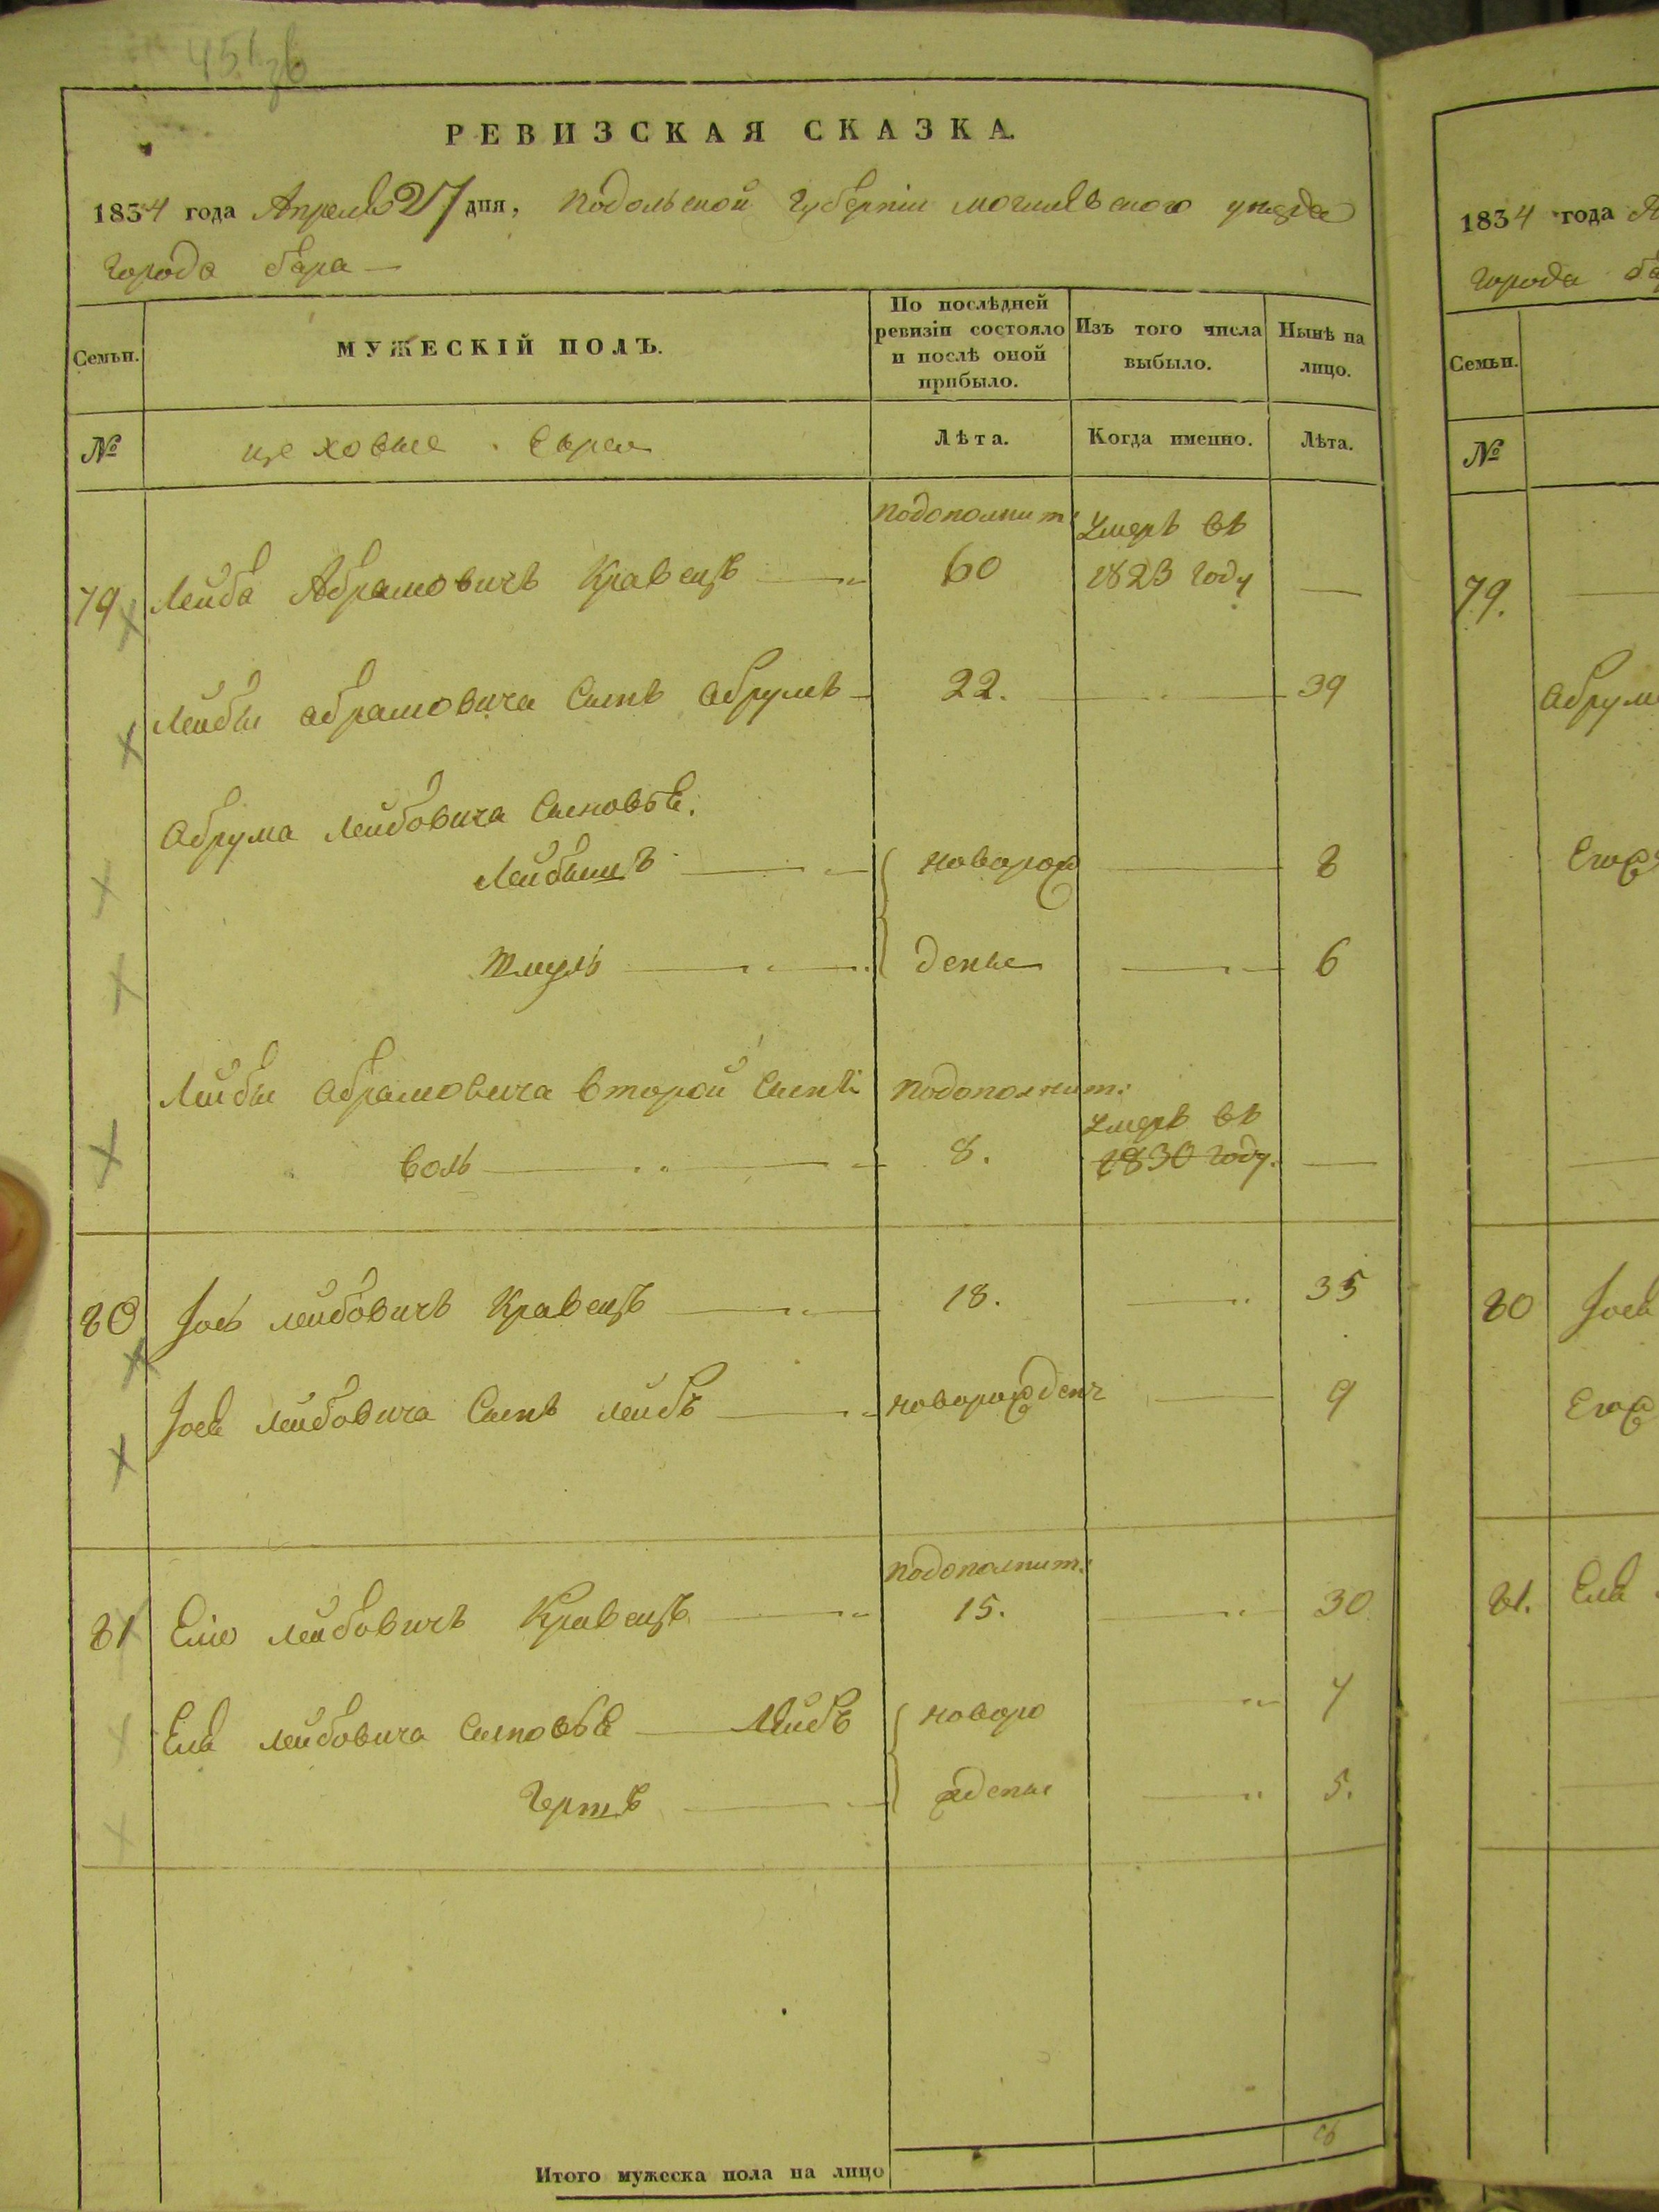 РЕВИЗСКАЯ СКАЗКА.
1834 года Апреля 27 дня, Подольской Губерніи могилевского уезда
Города бара —
Семьи.
МУЖЕСКІЙ ПОЛЪ.
По послѣдней ревизіи состояло и послѣ оной прибыло.
Изъ того числа выбыло.
Нынѣ на лицо.
№
цеховые Евреи
Лѣта.
Когда именно.
Лѣта.
подополнит:
Умеръ въ
79 Лейба Абрамовичъ Кравецъ — 60 1823 году —
Лейбы абрамовича Сынъ абрумъ — 22. — 39
Абрума Лейбовича Сыновья.
Лейбишъ — новорож — 8
Шмуль — деные — 6
Лейбы абрамовича второй Сынъ подополнит:
Умеръ въ
Воль — 8. 1830 году. —
80 Іось лейбовичъ Кравецъ — 18. — 35
Іося лейбовича Сынъ лейбъ — новорожден — 9
подополнит:
81 Еліо лейбовичъ Кравецъ — 15. — 30
лейбовича Сыновья — Лейбъ новоро — 7
Гершъ — жденые — 5.
Итого мужеска пола на лицо
1834 года
Города
Семьи.
№
79.
Абрум
80 Іося
81.